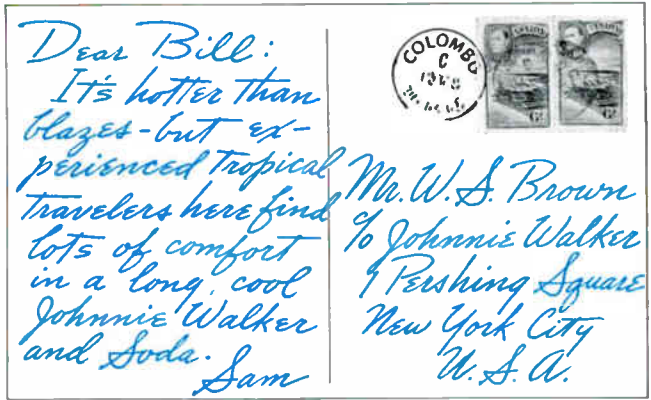 Dear Bill:
It's hotter than
blazes - but ex-
perienced Tropical
travelers here find
lots of comfort
in a long, cool
Johnnie Walker
and Soda.
Sam
COLOMBO
C
Mr. W. S. Brown
c/o Johnnie Walker
1 Pershing Square
New York City
U. S. A.